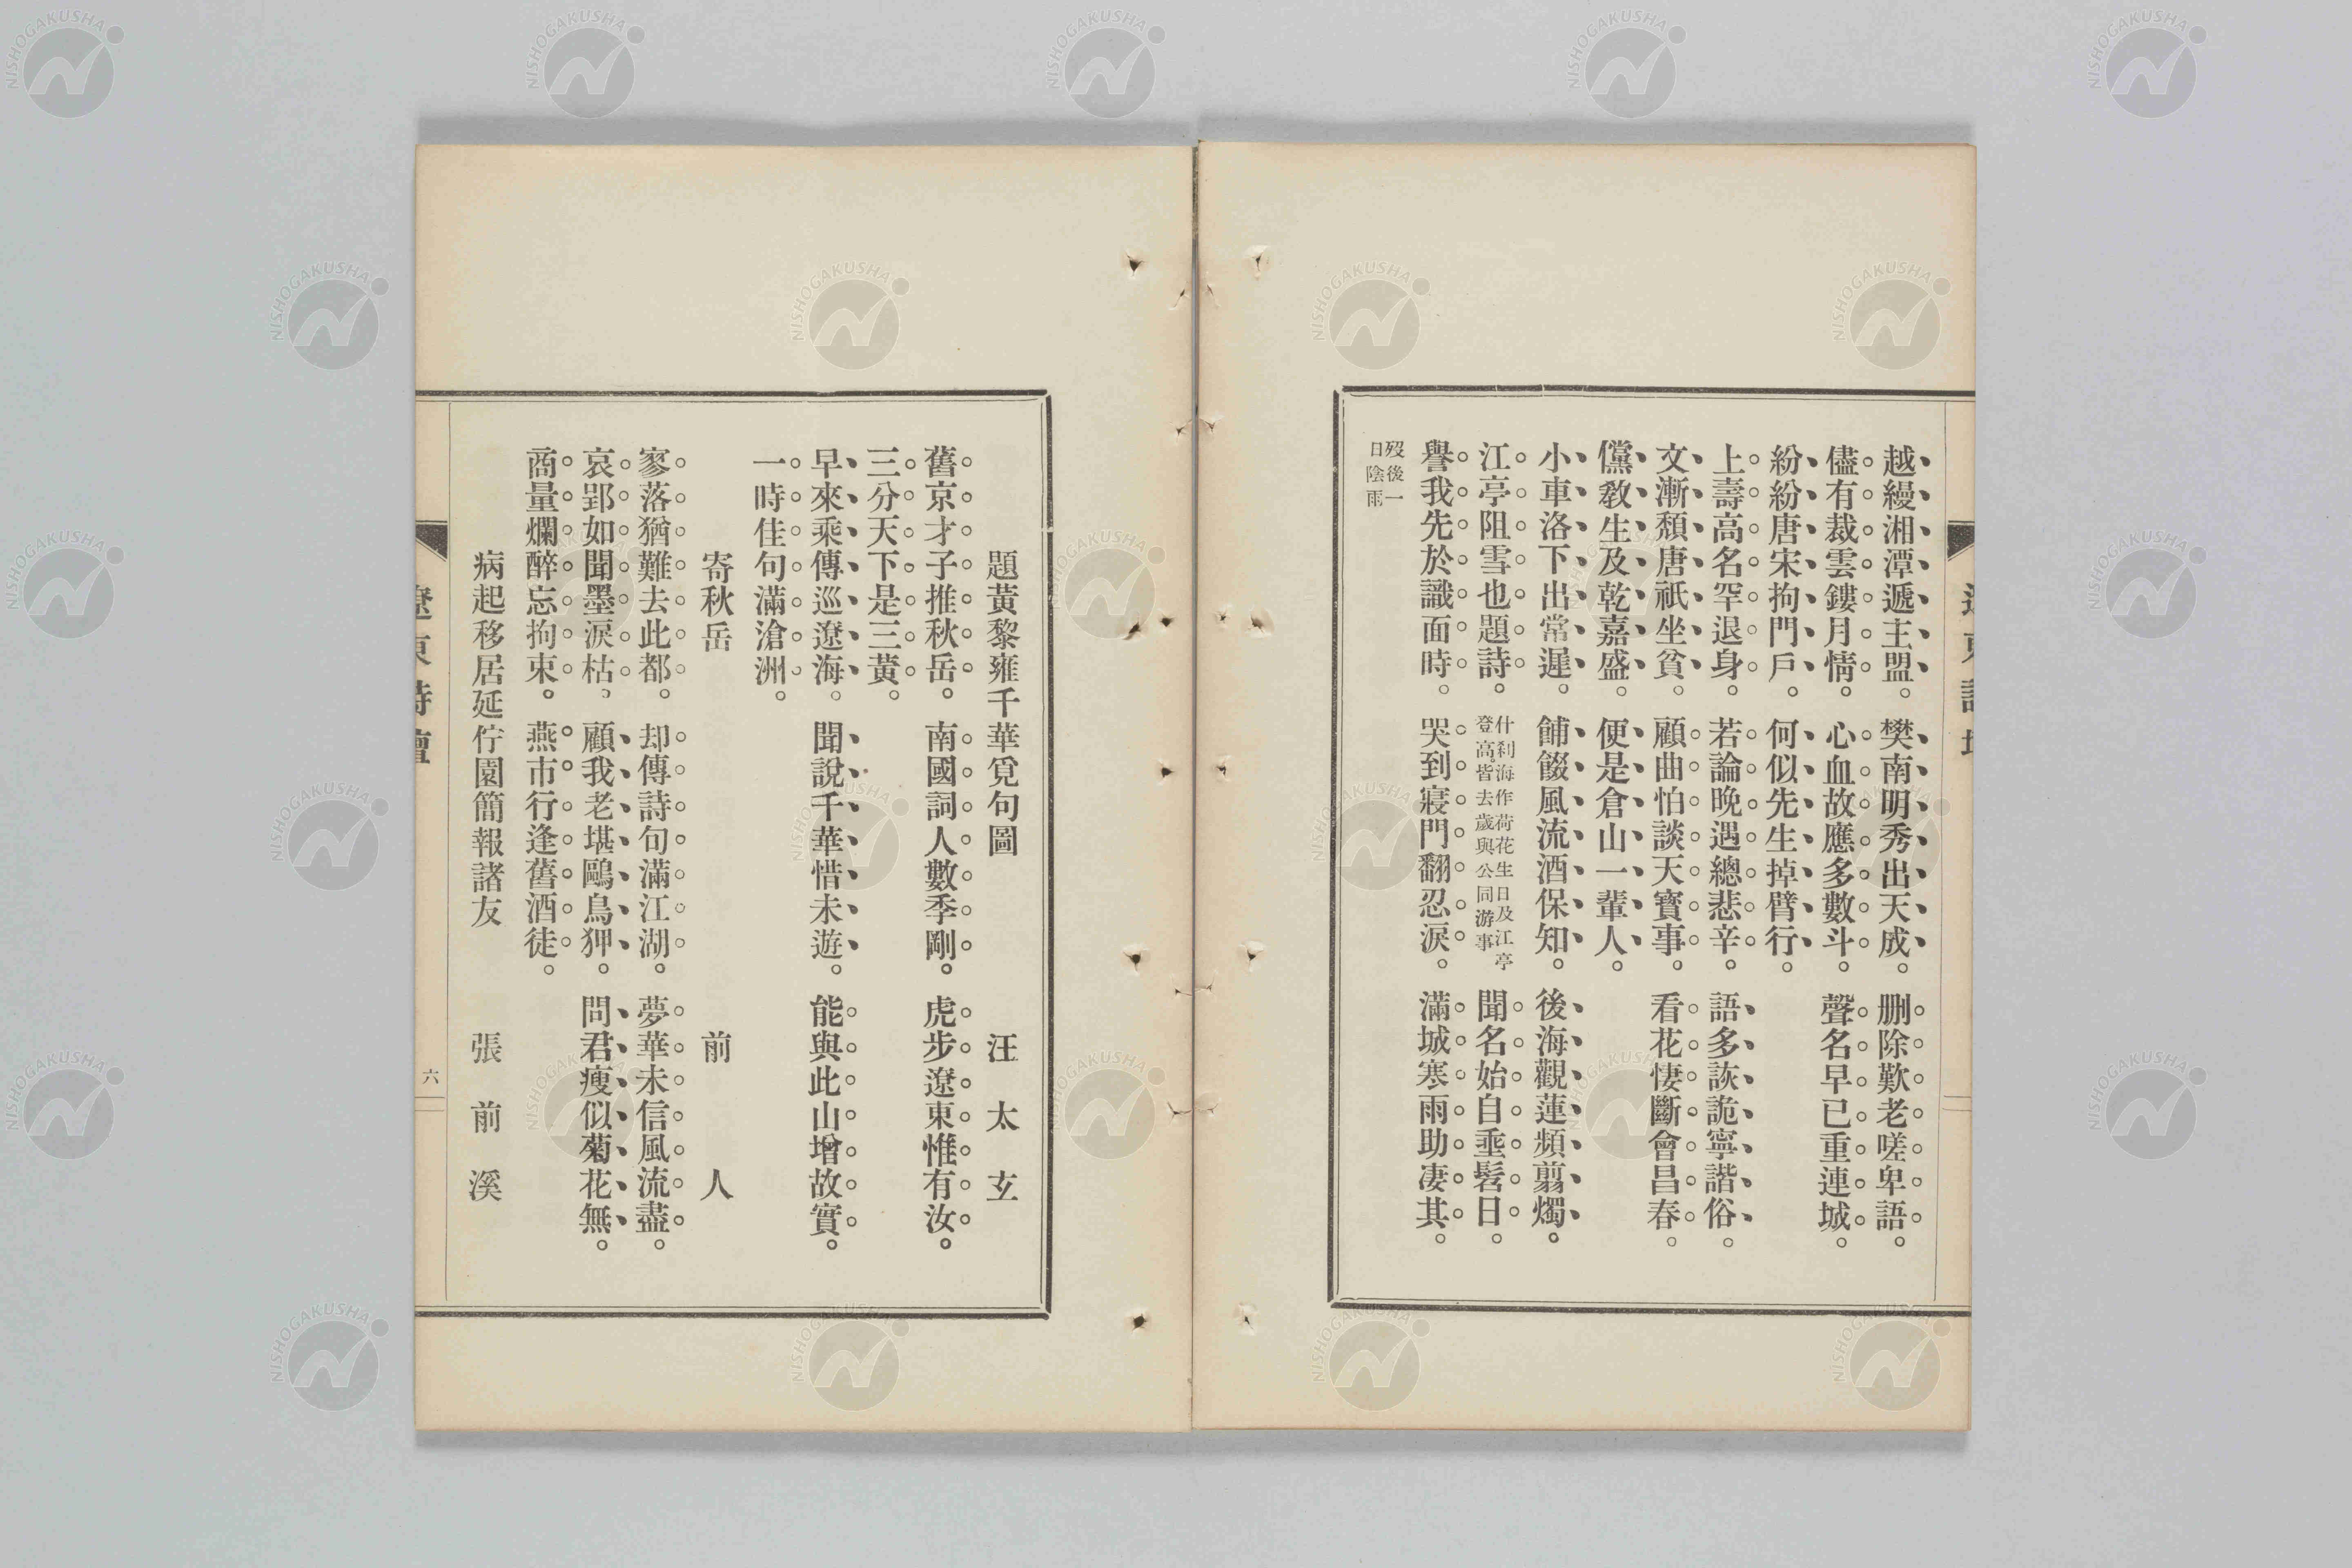 越縵湘潭遞主盟。樊南明秀出天成。刪除歎老嗟卑語。
儘有裁雲鏤月情。心血故應多數斗。聲名早已重連城。
紛紛唐宋拘門戶。何似先生掉臂行。
上壽高名罕退身。若論晚遇總悲辛。語多詼詭寧諧俗。
文漸頹唐祇坐貧。顧曲怕談天寶事。看花悽斷會昌春。
儻教生及乾嘉盛。便是倉山一輩人。
小車洛下出常遲。餔餟風流酒保知。後海觀蓮頻翦燭。
江亭阻雪也題詩。什刹海作荷花生日及江亭登高皆去歲與公同游事聞名始自埀髫日。
譽我先於識面時。哭到寢門翻忍淚。滿城寒雨助淒其。
歿後一日陰雨
遼東詩壇
題黃黎雍千華覓句圖 汪太玄
舊京才子推秋岳。南國詞人數季剛。虎步遼東惟有汝。
三分天下是三黃。
早來乘傳巡遼海。聞說千華惜未遊。能與此山增故實。
一時佳句滿滄洲。
寄秋岳 前人
寥落猶難去此都。却傳詩句滿江湖。夢華未信風流盡。
哀郢如聞墨淚枯。顧我老堪鷗鳥狎。問君瘦似菊花無。
商量爛醉忘拘束。燕市行逢舊酒徒。
病起移居延佇園簡報諸友 張前溪
遼東詩壇 六
NISHOGAKUSHA